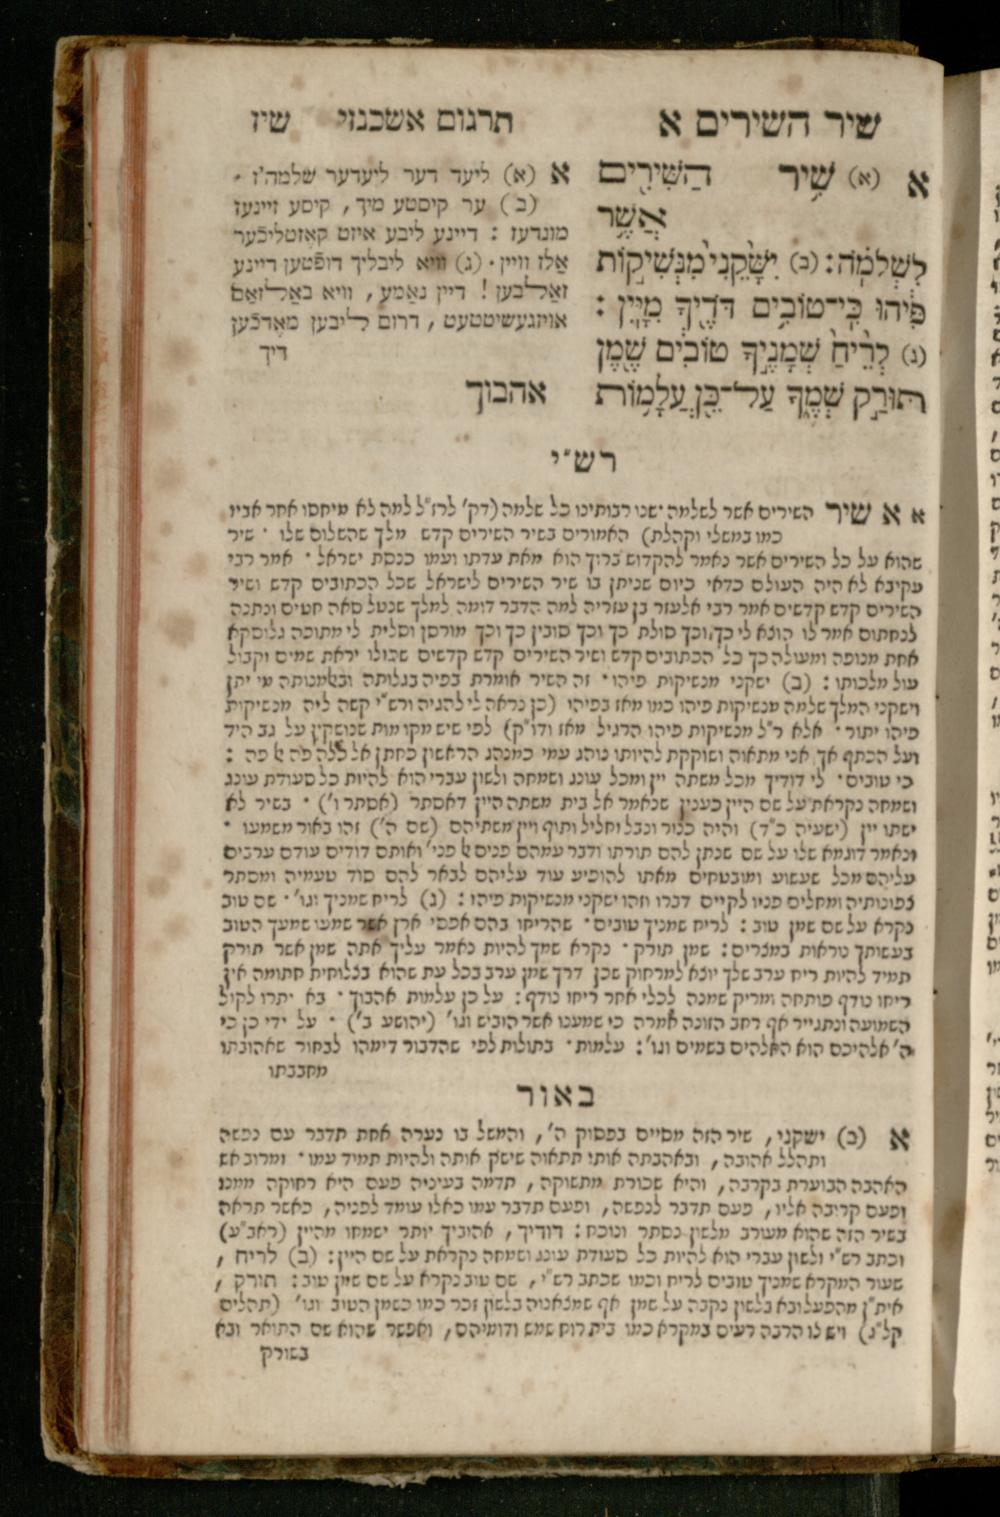 שיר השירים א
תרגום אשכנזי
שיז
א (א) שִׁ֥יר הַשִּׁירִ֖ים
אֲשֶׁ֥ר
לִשְׁלֹמֹֽה׃ (ב) יִשָּׁקֵ֙נִי֙ מִנְּשִׁיק֣וֹת
פִּ֔יהוּ כִּֽי־טוֹבִ֥ים דֹּדֶ֖יךָ מִיָּֽיִן׃
(ג) לְרֵ֙יחַ֙ שְׁמָנֶ֣יךָ טוֹבִ֔ים שֶׁ֖מֶן
תּוּרַ֣ק שְׁמֶ֑ךָ עַל־כֵּ֖ן עֲלָמ֥וֹת
אהבוך
א (א) ליעד דער ליעדער שלמה'ז ·
(ב) ער קיסטע מיך, קיסע זיינעז
מונדעז : דיינע ליבע איזט קאָזטליכֿער
אַלז וויין · (ג) וויא ליבליך דופֿטען דיינע
זאַלבען ! דיין נאַמע, וויא באַלזאַם
אויזגעשיטטעט, דרום ליבען מאֶדכֿען
דיך
רש"י
א א שיר השירים אשר לשלמה שנו רבותינו כל שלמה (דק' לרז"ל למה לא מיחסו אחר אביו
כמו במשלי וקהלת) האמורים בשיר השירים קדש מלך שהשלום שלו · שיר
שהוא על כל השירים אשר נאמר להקדוש ברוך הוא מאת עדתו ועמו כנסת ישראל · אמר רבי
עקיבא לא היה העולם כדאי כיום שניתן בו שיר השירים לישראל שכל הכתובים קדש ושיר
השירים קדש קדשים אמר רבי אלעזר בן עזריה למה הדבר דומה למלך שנטל סאה חטים ונתנה
לנחתום אמר לו הוצא לי כך וכך סולת כך וכך סובין כך וכך מורסן וסלית לי מתוכה גלוסקא
אחת מנופה ומעולה כך כל הכתובים קדש ושיר השירים קדש קדשים שכולו יראת שמים וקבול
עול מלכותו : (ב) ישקני מנשיקות פיהו · זה השיר אומרת בפיה בגלותה ובאלמנותה מי יתן
וישקני המלך שלמה מנשיקות פיהו כמו מאז בפיהו (כן נראה לי להגיה ורש"י קשה ליה מנשיקות
פיהו יתור · אלא ר"ל מנשיקות פיהו הרגיל מאז ודו"ק) לפי שיש מקומות שנושקין על גב היד
ועל הכתף אך אני מתאוה ושוקקת להיותו נוהג עמי כמנהג הראשון כחתן אל כלה פה אל פה :
כי טובים · לי דודיך מכל משתה יין ומכל עונג ושמחה ולשון עברי הוא להיות כל סעודת עונג
ושמחה נקראת על שם היין כענין שנאמר אל בית משתה היין דאסתר (אסתר ו') · בשיר לא
ישתו יין (ישעיה כ"ד) והיה כנור ונבל וחליל ותוף ויין משתיהם (שם ה') זהו באור משמעו ·
ונאמר דוגמא שלו על שם שנתן להם תורתו ודבר עמהם פנים אל פני' ואותם דודים עודם ערבים
עליהם מכל שעשוע ומובטחים מאתו להופיע עוד עליהם לבאר להם סוד טעמיה ומסתר
צפונותיה ומחלים פניו לקיים דברו וזהו ישקני מנשיקות פיהו : (ג) לריח שמניך וגו' · שם טוב
נקרא על שם שמן טוב : לריח שמניך טובים · שהריחו בהם אפסי ארץ אשר שמעו שמעך הטוב
בעשותך נוראות במצרים : שמן תורק · נקרא שמך להיות נאמר עליך אתה שמן אשר תורק
תמיד להיות ריח ערב שלך יוצא למרחוק שכן דרך שמן ערב בכל עת שהוא בצלוחית חתומה אין
ריחו נודף פותחה ומריק שמנה לכלי אחר ריחו נודף : על כן עלמות אהבוך · בא יתרו לקול
השמועה ונתגייר אף רחב הזונה אמרה כי שמענו אשר הוביש וגו' (יהושע ב') · על ידי כן כי
ה' אלהיכם הוא האלהים בשמים וגו' : עלמות · בתולות לפי שהדבור דימהו לבחור שאהובתו
מחבבתו
באור
א (ב) ישקני, שיר הזה מסיים בפסוק ה', והמשל בו נערה אחת תדבר עם נפשה
ותהלל אהובה, ובאהבתה אותו תתאוה שישק אותה ולהיות תמיד עמו · ומרוב אש
האהבה הבוערת בקרבה, והיא שכורת מתשוקה, תדמה בעיניה פעם היא רחוקה ממנו
ופעם קרובה אליו, פעם תדבר לנפשה, ופעם תדבר עמו כאלו עומד לפניה, כאשר תראה
בשיר הזה שהוא מעורב מלשון נסתר ונוכח : דודיך, אהוביך יותר ישמחו מהיין (ראב"ע)
וכתב רש"י ולשון עברי הוא להיות כל סעודת עונג ושמחה נקראת על שם היין : (ב) לריח,
שעור המקרא שמניך טובים לריח וכמו שכתב רש"י, שם טוב נקרא על שם שמן טוב : תורק,
אית"ן מהפעל ובא בלשון נקבה על שמן אף שמצאנוהו בלשון זכר כמו כשמן הטוב וגו' (תהלים
קל"ג) ויש לו הרבה רעים במקרא כמו בית רוח שמש ודומיהם, ואפשר שהוא שם התואר ובא
בשורק